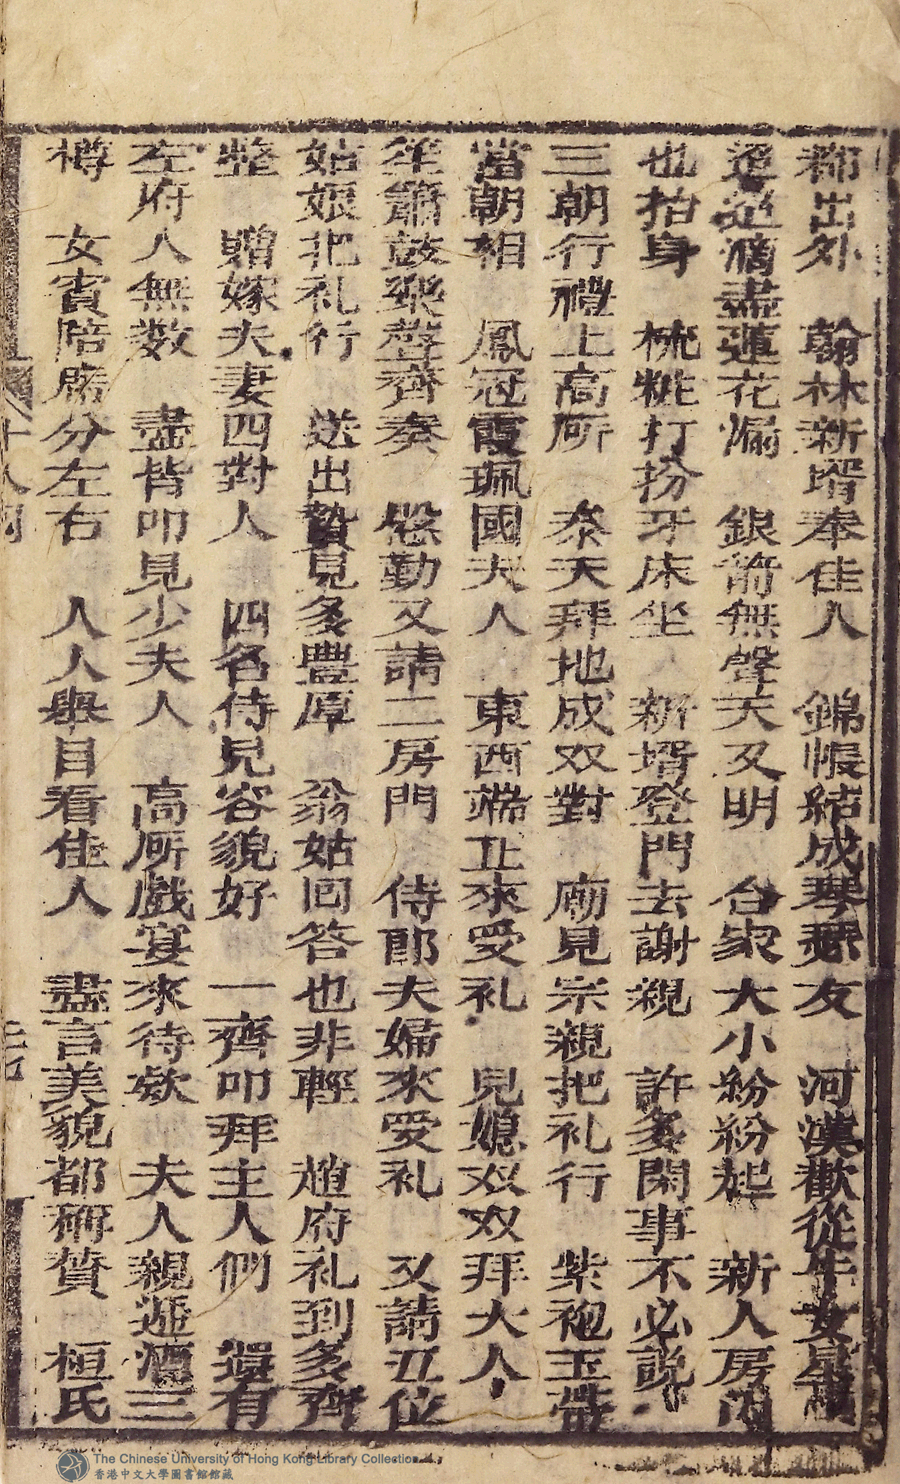 都出外　翰林新壻奉佳人　錦帳結成琴瑟友　河漢歡從牛女星
迢迢滴盡蓮花漏　銀箭無聲天又明　合家大小紛紛起　新人房內
也抬身　梳粧打扮牙床坐　新壻登門去謝親　許多閑事不必說
三朝行禮上高所　泰天拜地成双對　廟見宗親把礼行　紫袍玉帶
當朝相　鳳冠霞珮國夫人　東西端正來受礼　兒媳双双拜大人
笙簫鼓樂聲齊奏　慇勤又請二房門　侍郎夫婦來受礼　又請五位
姑娘把礼行　送出贄見多豐厚　翁姑回答也非輕　趙府礼到多齊
整　贈嫁夫妻四對人　四名侍兒容貌好　一齊叩拜主人們　還有
左府人無数　盡皆叩見少夫人　高所戲宴來待欵　夫人親遞酒三
樽　女賓陪席分左右　人人舉目看佳人　盡言美貌都稱贊　桓氏
The Chinese University of Hong Kong Library Collection
香港中文大學圖書館館藏